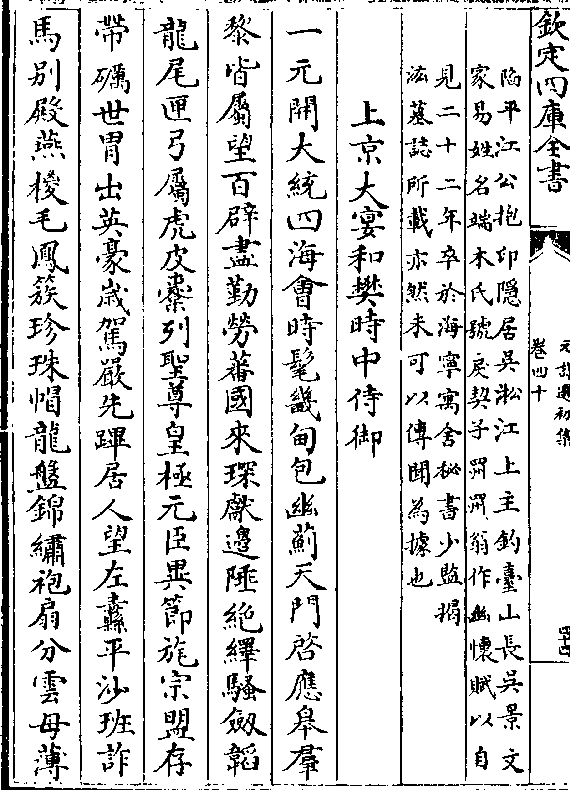 欽定四庫全書
元詩選初集
卷四十
陷平江公抱印隱居吳淞江上主釣臺山長吳景文
家易姓名端木氏號戾契子罔罔翁作幽懷賦以自
見二十二年卒於海寧寓舍秘書少監揭
汯墓誌所載亦然未可以傳聞為據也
上京大宴和樊時中侍御
一元開大統四海會時髦畿甸包幽薊天門啓應皋羣
黎皆屬望百辟盡勤勞蕃國來琛獻邊陲絶繹騷劔韜
龍尾匣弓屬虎皮櫜列聖尊皇極元臣異節旄宗盟存
帶礪世胄出英豪嵗駕嚴先蹕居人望左纛平沙班詐
馬别殿燕椶毛鳳簇珍珠帽龍盤錦繡袍扇分雲母薄